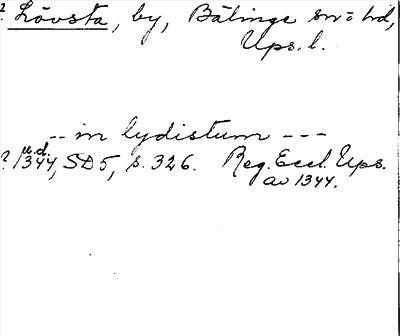 ? Lövsta, by, Bälinge sn o hd,
Ups. l.
-- in lydistum ---
u. d.
? 1344, SD 5, s. 326. Reg. Eccl. Ups.
av 1344.